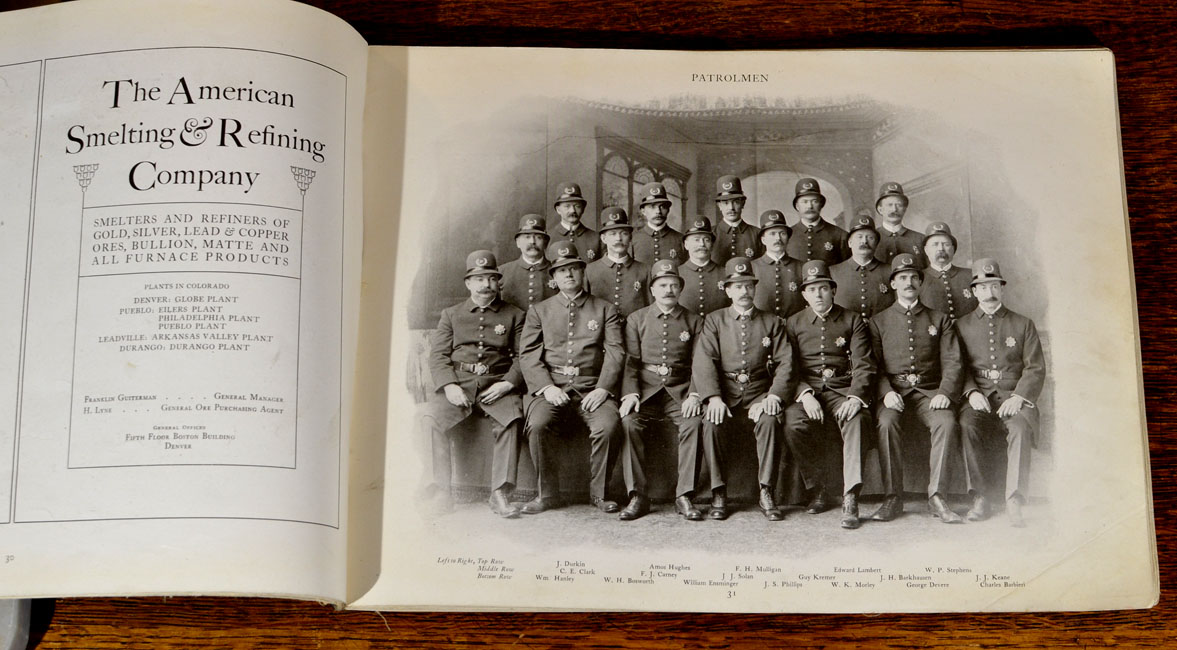 The American
Smelting & Refining
Company
SMELTERS AND REFINERS OF
GOLD, SILVER, LEAD & COPPER
ORES, BULLION, MATTE AND
ALL FURNACE PRODUCTS
PLANTS IN COLORADO
DENVER: GLOBE PLANT
PUEBLO: EILERS PLANT
PHILADELPHIA PLANT
PUEBLO PLANT
LEADVILLE: ARKANSAS VALLEY PLANT
DURANGO: DURANGO PLANT
FRANKLIN GUITERMAN . . . . GENERAL MANAGER
H. LYNE . . . GENERAL ORE PURCHASING AGENT
GENERAL OFFICES
FIFTH FLOOR BOSTON BUILDING
DENVER
30
PATROLMEN
Left to Right, Top Row J. Durkin Amos Hughes F. H. Mulligan Edward Lambert W. P. Stephens
Middle Row C. E. Clark F. J. Carney J. J. Solan Guy Kremer J. H. Barkhausen J. J. Keane
Bottom Row Wm. Hanley W. H. Bosworth William Ensminger J. S. Phillips W. K. Morley George Devere Charles Barbieri
31